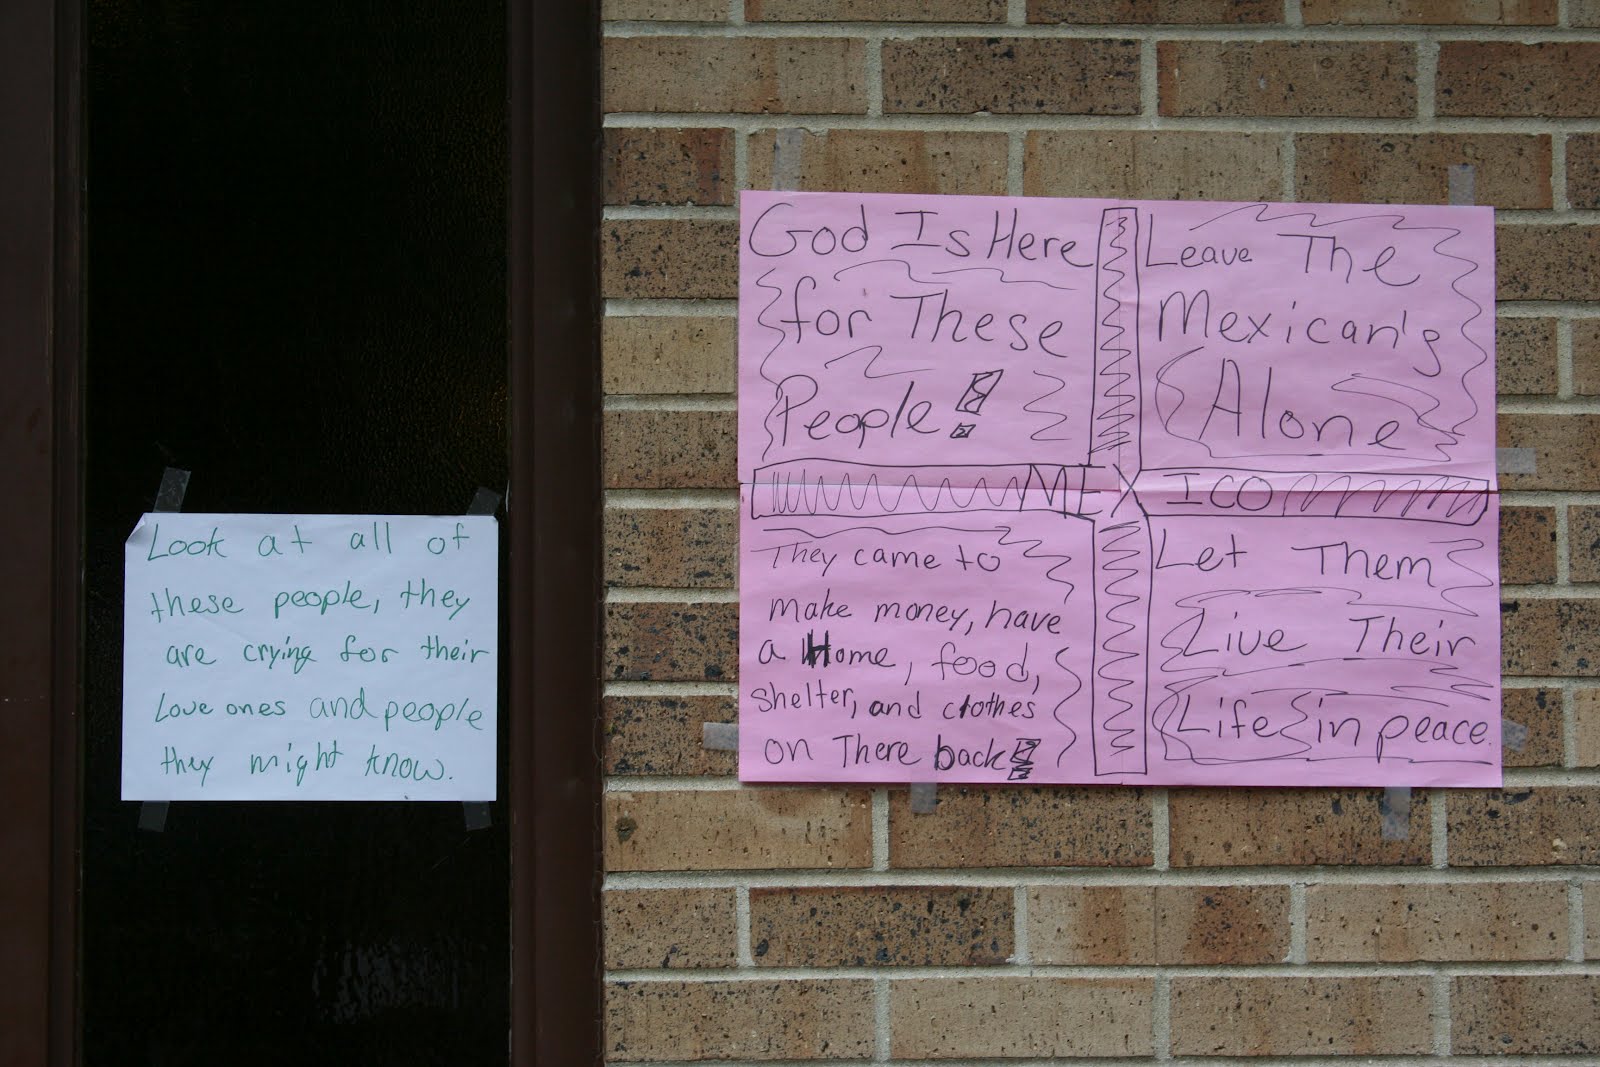 Look at all of
these people, they
are crying for their
Love ones and people
they might know.
God Is Here
for These
People!
Leave The
Mexican's
Alone
MEXICO
They came to
make money, have
a Home, food,
shelter, and clothes
on There back!
Let Them
Live Their
Life in peace.